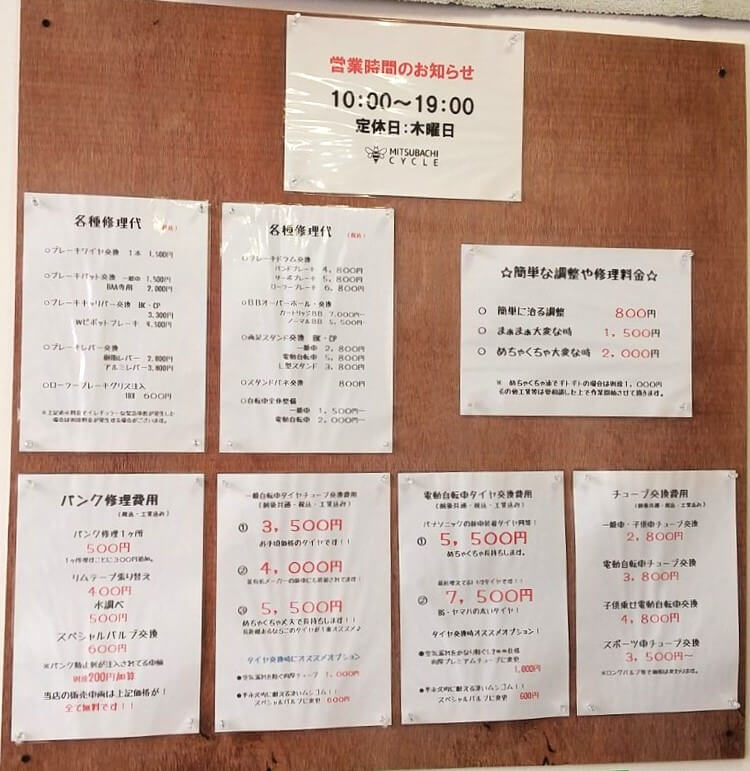 営業時間のお知らせ
10:00〜19:00
定休日:木曜日
MITSUBACHI
CYCLE
各種修理代 (税込)
○ブレーキワイヤ交換 1本 1,500円
○ブレーキパット交換 一般車 1,500円
BAA専用 2,000円
○ブレーキキャリパー交換 BK・CP
3,300円
Wピボットブレーキ 4,500円
○ブレーキレバー交換
樹脂レバー 2,800円
アルミレバー 3,800円
○ローラーブレーキグリス注入
1回 600円
各種修理代 (税込)
○ブレーキドラム交換
バンドブレーキ 4,800円
サーボブレーキ 5,800円
ローラーブレーキ 6,800円
○BBオーバーホール・交換
カートリッジBB 7,000円〜
ノーマルBB 5,500円〜
○両足スタンド交換 BK・CP
一般車 2,800円
電動自転車 5,800円
L型スタンド 3,800円
○スタンドバネ交換 800円
○自転車全体整備
一般車 1,500円〜
電動自転車 2,000円〜
☆簡単な調整や修理料金☆
○ 簡単に治る調整 800円
○ まぁまぁ大変な時 1,500円
○ めちゃくちゃ大変な時 2,000円
※ めちゃくちゃ油でギトギトの場合は別途1,000円
その他工賃等は要相談した上で作業開始させて頂きます。
パンク修理費用
(税込・工賃込み)
パンク修理1ヶ所
500円
1ヶ所増すごとに300円追加。
リムテープ張り替え
400円
水調べ
500円
スペシャルバルブ交換
600円
※パンク防止剤が注入されてる車輪
別途200円加算
当店の販売車両は上記価格が!
全て無料です!!
一般自転車タイヤチューブ交換費用
(前後共通・税込・工賃込み)
① 3,500円
お手頃価格のタイヤです!!
② 4,000円
有名メーカーの新車にも装着されてます!
③ 5,500円
めちゃくちゃ丈夫で長持ちします!!
長距離走るならこのタイヤが1番オススメ♪
タイヤ交換時にオススメオプション
●空気漏れを防ぐ肉厚チューブ 1,000円
●季永久的に耐える凄いムシゴム!!
スペシャルバルブに変更 600円
電動自転車タイヤ交換費用
(前後共通・税込・工賃込み)
パナソニックの新車装着タイヤ同等!
① 5,500円
めちゃくちゃ長持ちします。
② 7,500円
BS・ヤマハの太いタイヤ!
タイヤ交換時オススメオプション!
肉厚プレミアムチューブに変更
1,000円
スペシャルバルブに変更 600円
チューブ交換費用
(前後共通・税込・工賃込み)
一般車・子供車チューブ交換
2,800円
電動自転車チューブ交換
3,800円
子供乗せ電動自転車交換
4,800円
スポーツ車チューブ交換
3,500円〜
※ロングバルブ等で価格は変わります。